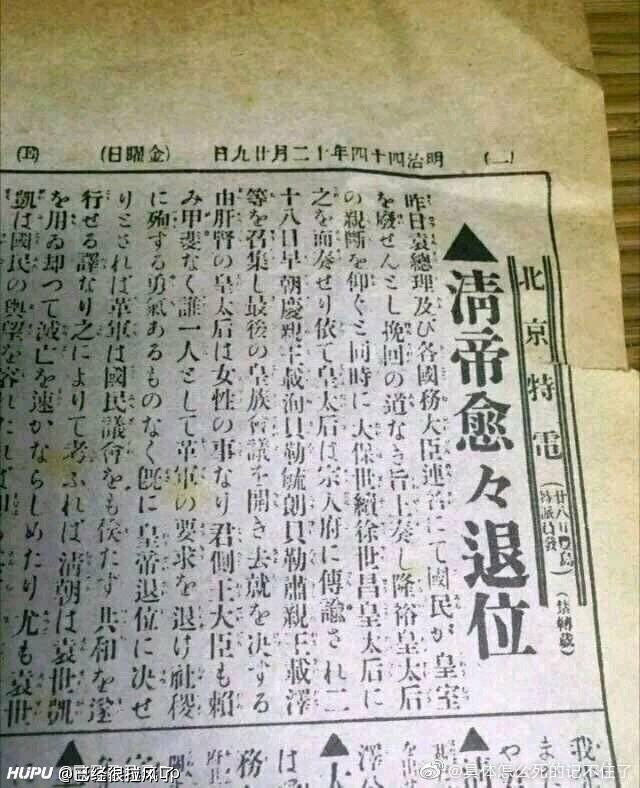 (二)
明治四十四年十二月廿九日
(金曜日)
北京特電
(廿八日豐島特派員發)
(禁轉載)
▲清帝愈々退位
昨日袁總理及び各國務大臣連名にて國民が皇室
を廢せんとし挽回の道なき旨上奏し隆裕皇太后
の親斷を仰ぐと同時に大保世續徐世昌皇太后に
之を面奏せり依て皇太后は宗人府に傳諭され二
十八日早朝慶親王載洵貝勒毓朗貝勒肅親王載澤
等を召集し最後の皇族會議を開き去就を決する
由肝腎の皇太后は女性の事なり君側王大臣も賴
み甲斐なく誰一人として革軍の要求を退け社稷
に殉する勇氣あるものなく既に皇帝退位に決せ
りとされば革軍は國民議會をも俟たず共和を遂
行せる譯なり之によりて考ふれば清朝は袁世凱
を用ゐ却つて滅亡を速かならしめたり尤も袁世
凱は國民の輿望を容れたれば
HUPU @已经很拉风了jp
@具体怎么死的记不住了